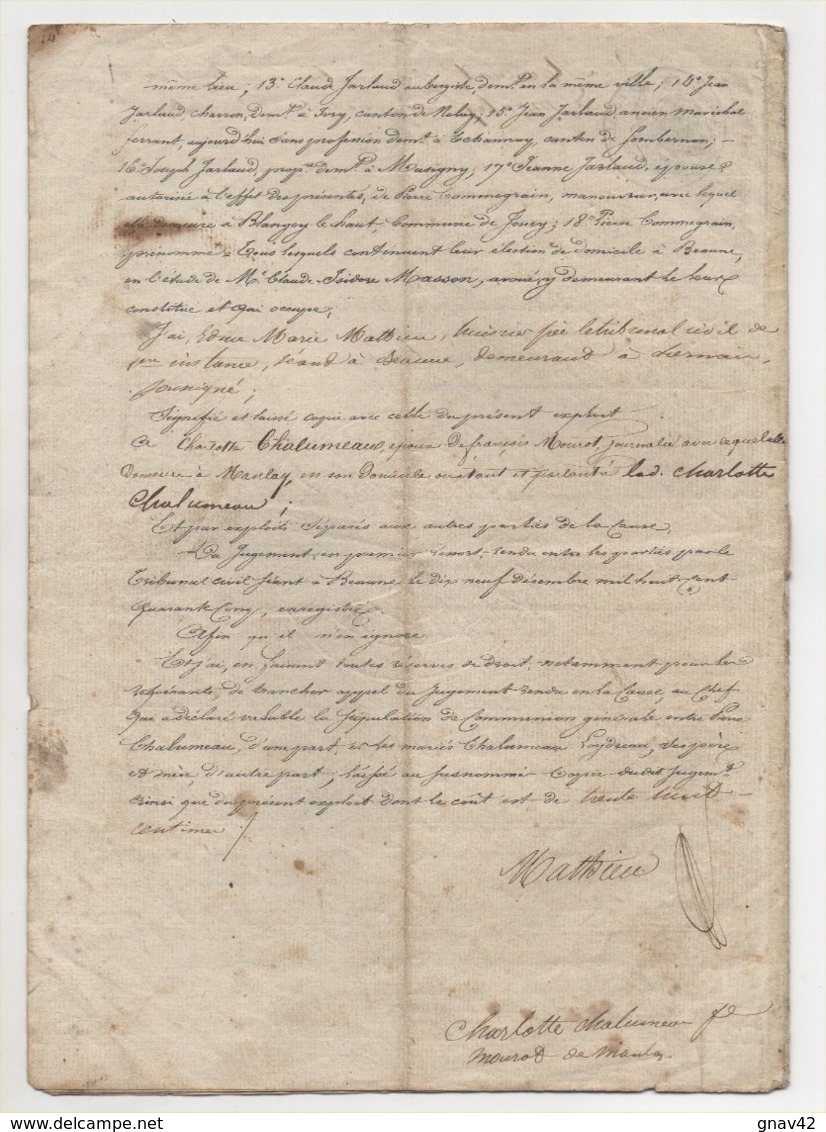 même lieu; 13° Claude Jarlaud aubergiste, demt en la même ville; 14° Jean
Jarlaud, charron, demt à Ivry, canton de Nolay; 15° Jean Jarlaud, ancien maréchal
ferrant, aujourd'hui sans profession demt à Echannay, canton de Sombernon; –
16° Joseph Jarlaud, propre demt à Musigny; 17° Jeanne Jarlaud, épouse
autorisée à l'effet des présentes, de Pierre Commegrain, manouvrier, avec lequel
elle demeure à Blangey le haut, Commune de Jouey; 18° Pierre Commegrain,
prénommé. Tous lesquels continuent leur élection de domicile à Beaune,
en l'étude de Me Claude Isidore Masson, avoué, y demeurant le leur
constitué et qui occupe;
J'ai, Edme Marie Mathieu, huissier près le tribunal civil de
1ere instance, séant à Beaune, demeurant à Lernais,
soussigné;
Signifié et laissé copie avec celle du présent exploit
à Charlotte Chalumeau, épouse de françois Mourot, journalier avec lequel elle
demeure à Manlay, en son domicile où étant et parlant à lad. Charlotte
Chalumeau;
Et par exploits séparés aux autres parties de la cause,
Du Jugement, en premier ressort, rendu entre les parties par le
Tribunal civil séant à Beaune le dix neuf décembre mil huit cent
quarante cinq, enregistré.
Afin qu'il n'en ignore
Et j'ai, en faisant toutes réserves de droit, notamment pour les
requérants, de trancher appel du Jugement rendu en la Cause, au Chef
qui a déclaré valable la stipulation de Communion générale entre Pierre
Chalumeau, d'une part et les mariés Chalumeau Loydreau, ses père
et mère, d'autre part, laissé au susnommé Copie dudit Jugemt
ainsi que du présent exploit dont le coût est de trente huit –
centimes
Mathieu
Charlotte chalumeau fe
mourot de manlay
gnav42